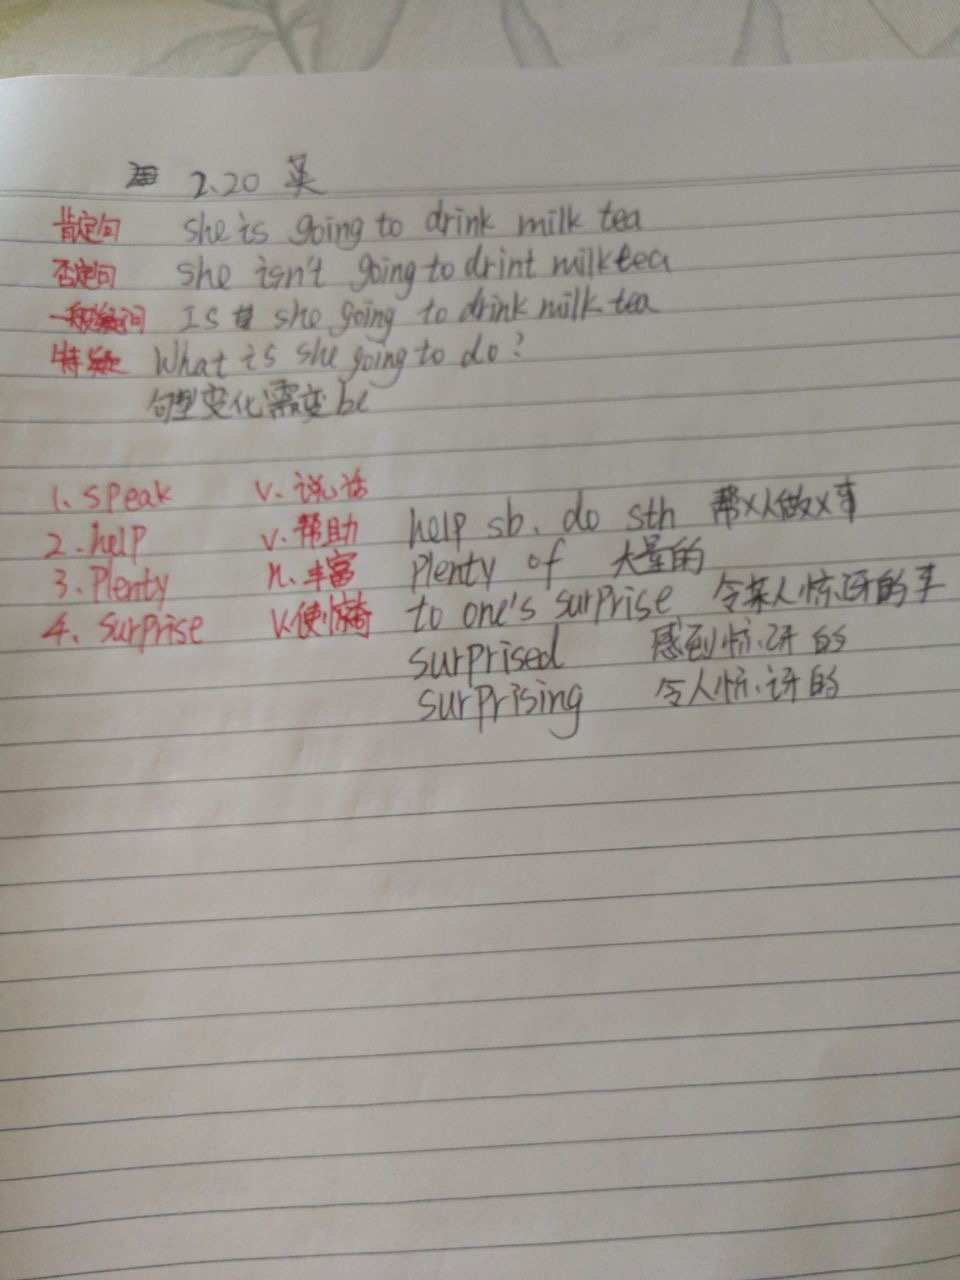 2.20 英
肯定句 she is going to drink milk tea
否定句 she isn't going to drint milk tea
一般疑问 Is she going to drink milk tea
特疑 What is she going to do?
句型变化需变 be
1. speak v. 说话
2. help v. 帮助 help sb. do sth 帮X人做X事
3. Plenty n. 丰富 plenty of 大量的
4. surprise v. 使惊奇 to one's surprise 令某人惊讶的事
surprised 感到惊讶的
surprising 令人惊讶的